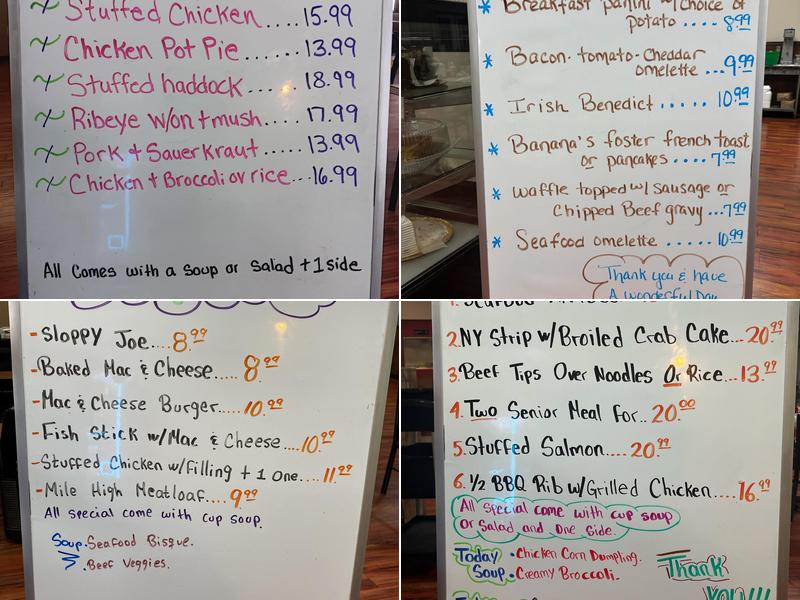 Stuffed Chicken....15.99
Chicken Pot Pie......13.99
Stuffed haddock.....18.99
Ribeye w/on+mush....17.99
Pork + Sauerkraut.....13.99
Chicken + Broccoli ov rice...16.99
All Comes with a soup or salad +1 side
* Breakfast panini ~ choice of
potato .... 8.99
* Bacon-tomato-cheddar
omelette ...9.99
* Irish Benedict ..... 10.99
* Banana's foster french toast
or pancakes .... 7.99
* waffle topped w/ sausage or
Chipped Beef gravy ...7.99
* Seafood omelette ..... 10.99
Thank you & have
A wonderful Day
-Sloppy Joe....8.99
-Baked Mac & Cheese.....8.99
-Mac & Cheese Burger.....10.99
-Fish Stick w/Mac & Cheese....10.99
-Stuffed Chicken w/filling + 1 one...11.99
-Mile High Meatloaf....9.99
All special come with cup soup.
Soup.Seafood Bisque.
.Beef Veggies.
1. Seafood
2.NY Strip w/Broiled Crab Cake...20.99
3.Beef Tips Over Noodles Or Rice...13.99
4.Two Senior Meal For..20.00
5.Stuffed Salmon....20.99
6.1/2 BBQ Rib w/Grilled Chicken....16.99
All special come with cup soup
Or Salad and One Side.
Today .Chicken Corn Dumpling.
Soup .Creamy Broccoli.
Thank
YOU!!!